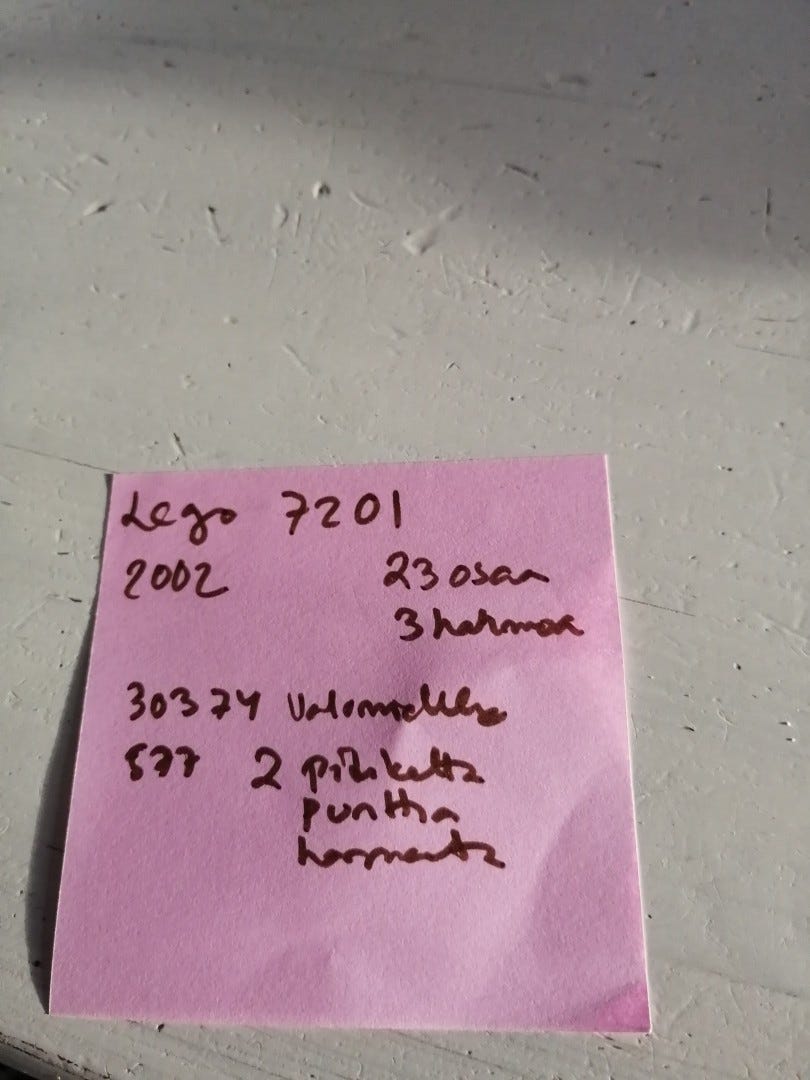 Lego 7201
2002 23 osaa
3 hahmoa
30374 Valomiekka
577 2 
puuttua
harmaata